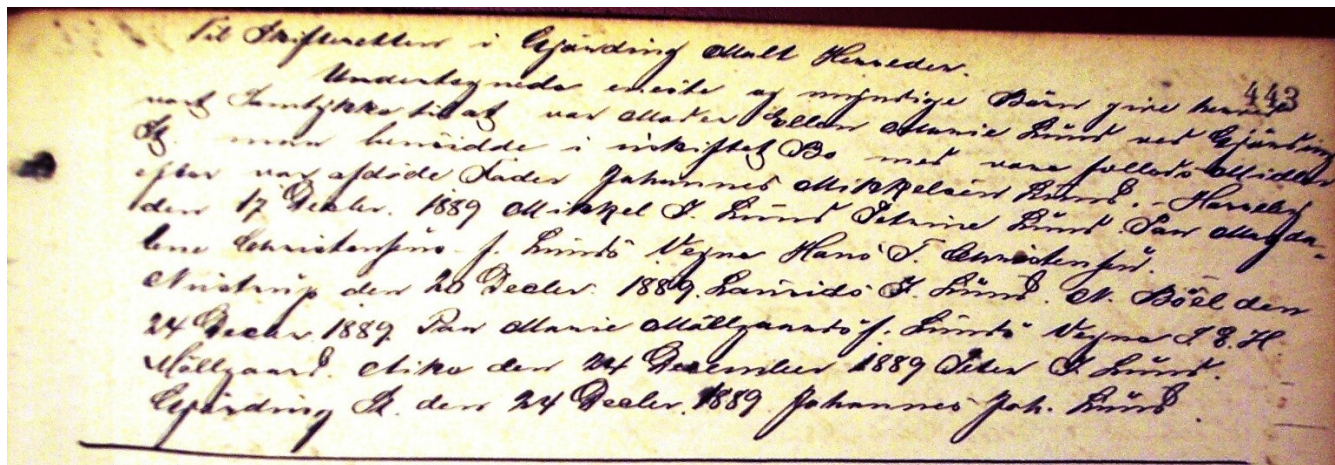 Til Skifteretten i Gjørding Malt Herreder.
443
Undertegnede eneste og myndige Børn give herved
vort Samtykke til at vor Moder Ellen Marie Lund ved Gjørding
St. maa hensidde i uskiftet Bo med vore fælleds Midler
efter vor afdøde Fader Johannes Mikkelsen Lund. - Harreby
den 17 Decbr. 1889 Mikkel J. Lund Petrine Lund. Paa Magda-
lene Christensens f. Lunds Vegne Hans T. Christensen.
Nustrup den 20 Decbr. 1889. Laurids J. Lund. N. Bøel den
24 Decbr. 1889. Paa Marie Møllgaards f. Lunds Vegne I. E. H.
Møllgaard. den 24 December 1889 Peter J. Lund.
Gjørding St. den 24 Decbr. 1889. Johannes Joh. Lund.